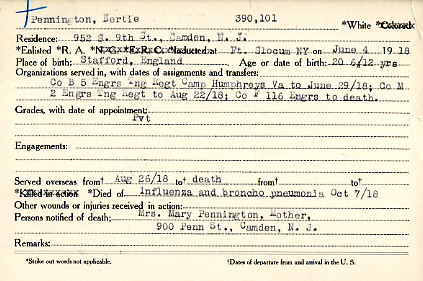 Pennington, Bertie 390,101 *White *Colored
Residence: 952 S. 9th St., Camden, N. J.
*Enlisted *R. A. *N. G. *E. R. C. *Inducted at Ft. Slocum NY on June 4 1918
Place of birth: Stafford, England Age or date of birth: 20 6/12 yrs
Organizations served in, with dates of assignments and transfers:
Co B 5 Engrs Tng Regt Camp Humphreys Va to June 29/18; Co M
2 Engrs Tng Regt to Aug 22/18; Co F 116 Engrs to death.
Grades, with date of appointment:
Pvt
Engagements:
Served overseas from† Aug 26/18 to† death from† to†
*Killed in action *Died of Influenza and broncho pneumonia Oct 7/18
Other wounds or injuries received in action:
Persons notified of death: Mrs. Mary Pennington, Mother,
900 Penn St., Camden, N. J.
Remarks:
*Strike out words not applicable. †Dates of departure from and arrival in the U. S.